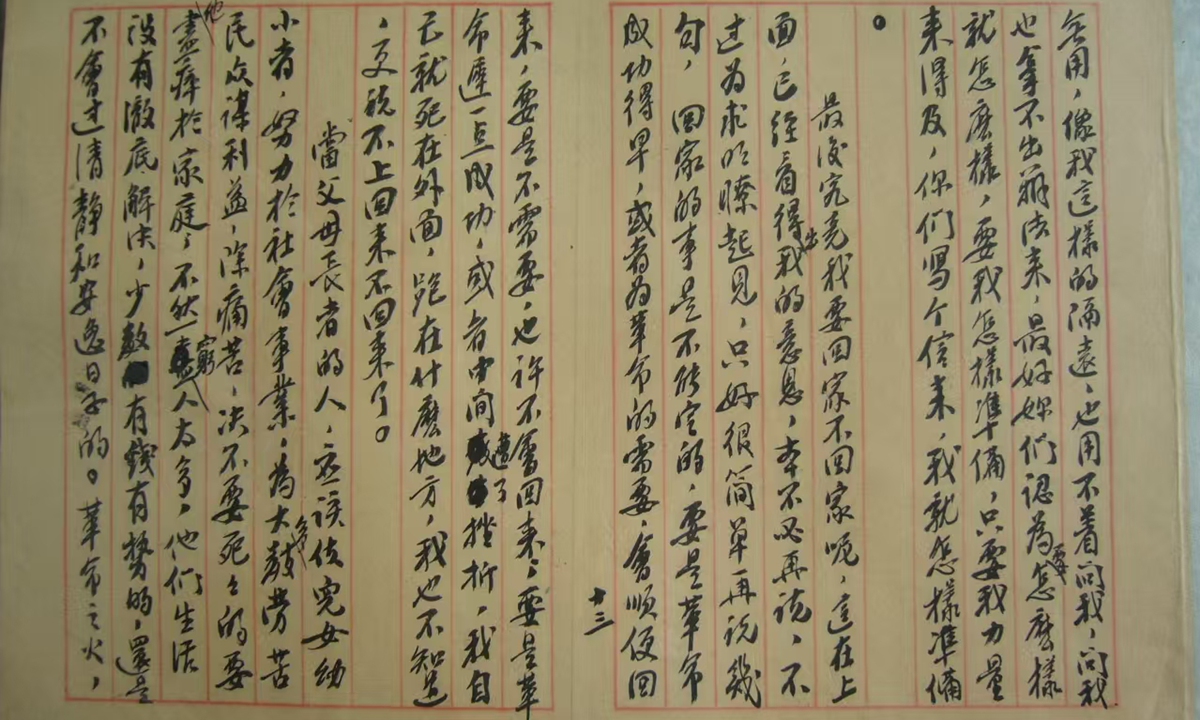 無用，像我這樣的隔遠，也用不着問我，問我
也拿不出辦法來，最好妳們認為要怎麽樣
就怎麽樣，要我怎樣準備，只要我力量
來得及，你們寫个信來，我就怎樣準備
。
最後究竟我要回家不回家呢，這在上
面，已經看得出我的意思，本不必再說，不
过为求明瞭起見，只好很简单再说幾
句，回家的事是不能定的，要是革命
成功得早，或者为革命的需要，會順便回
十三
来，要是不需要，也许不會回来，要是革
命遲一点成功，或者中间遭了挫折，我自
己就死在外面，跑在什麽地方，我也不知道
，更説不上回来不回来了。
當父母長者的人，应该使兒女幼
小者，努力於社會事業，為大多数劳苦
民众谋利益，除痛苦，决不要死死的要
他盡瘁於家庭，不然一窮人太多，他们生活
没有澈底解决，少数有錢有勢的，還是
不會过清靜和安逸日子的。革命之火，